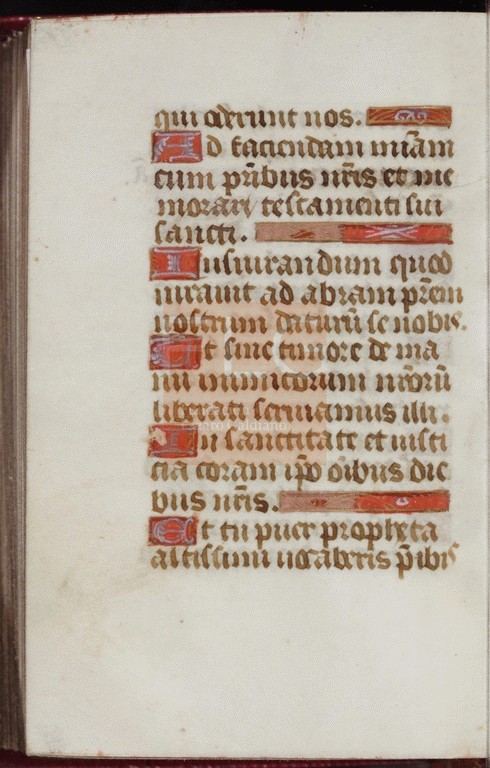 qui oderunt nos.
Ad faciendam mīam
cum pr̄ibus nr̄is et me
morari testamenti sui
sancti.
Iusiurandum quod
iurauit ad abram pr̄em
nostrum daturū se nobis.
Et sine timore de ma
nu inimicorum nr̄orū
liberati seruiamus illi.
In sanctitate et iusti
cia coram ip̄o oībus die
bus nr̄is.
Et tu puer propheta
altissimi uocaberis p̄ibis